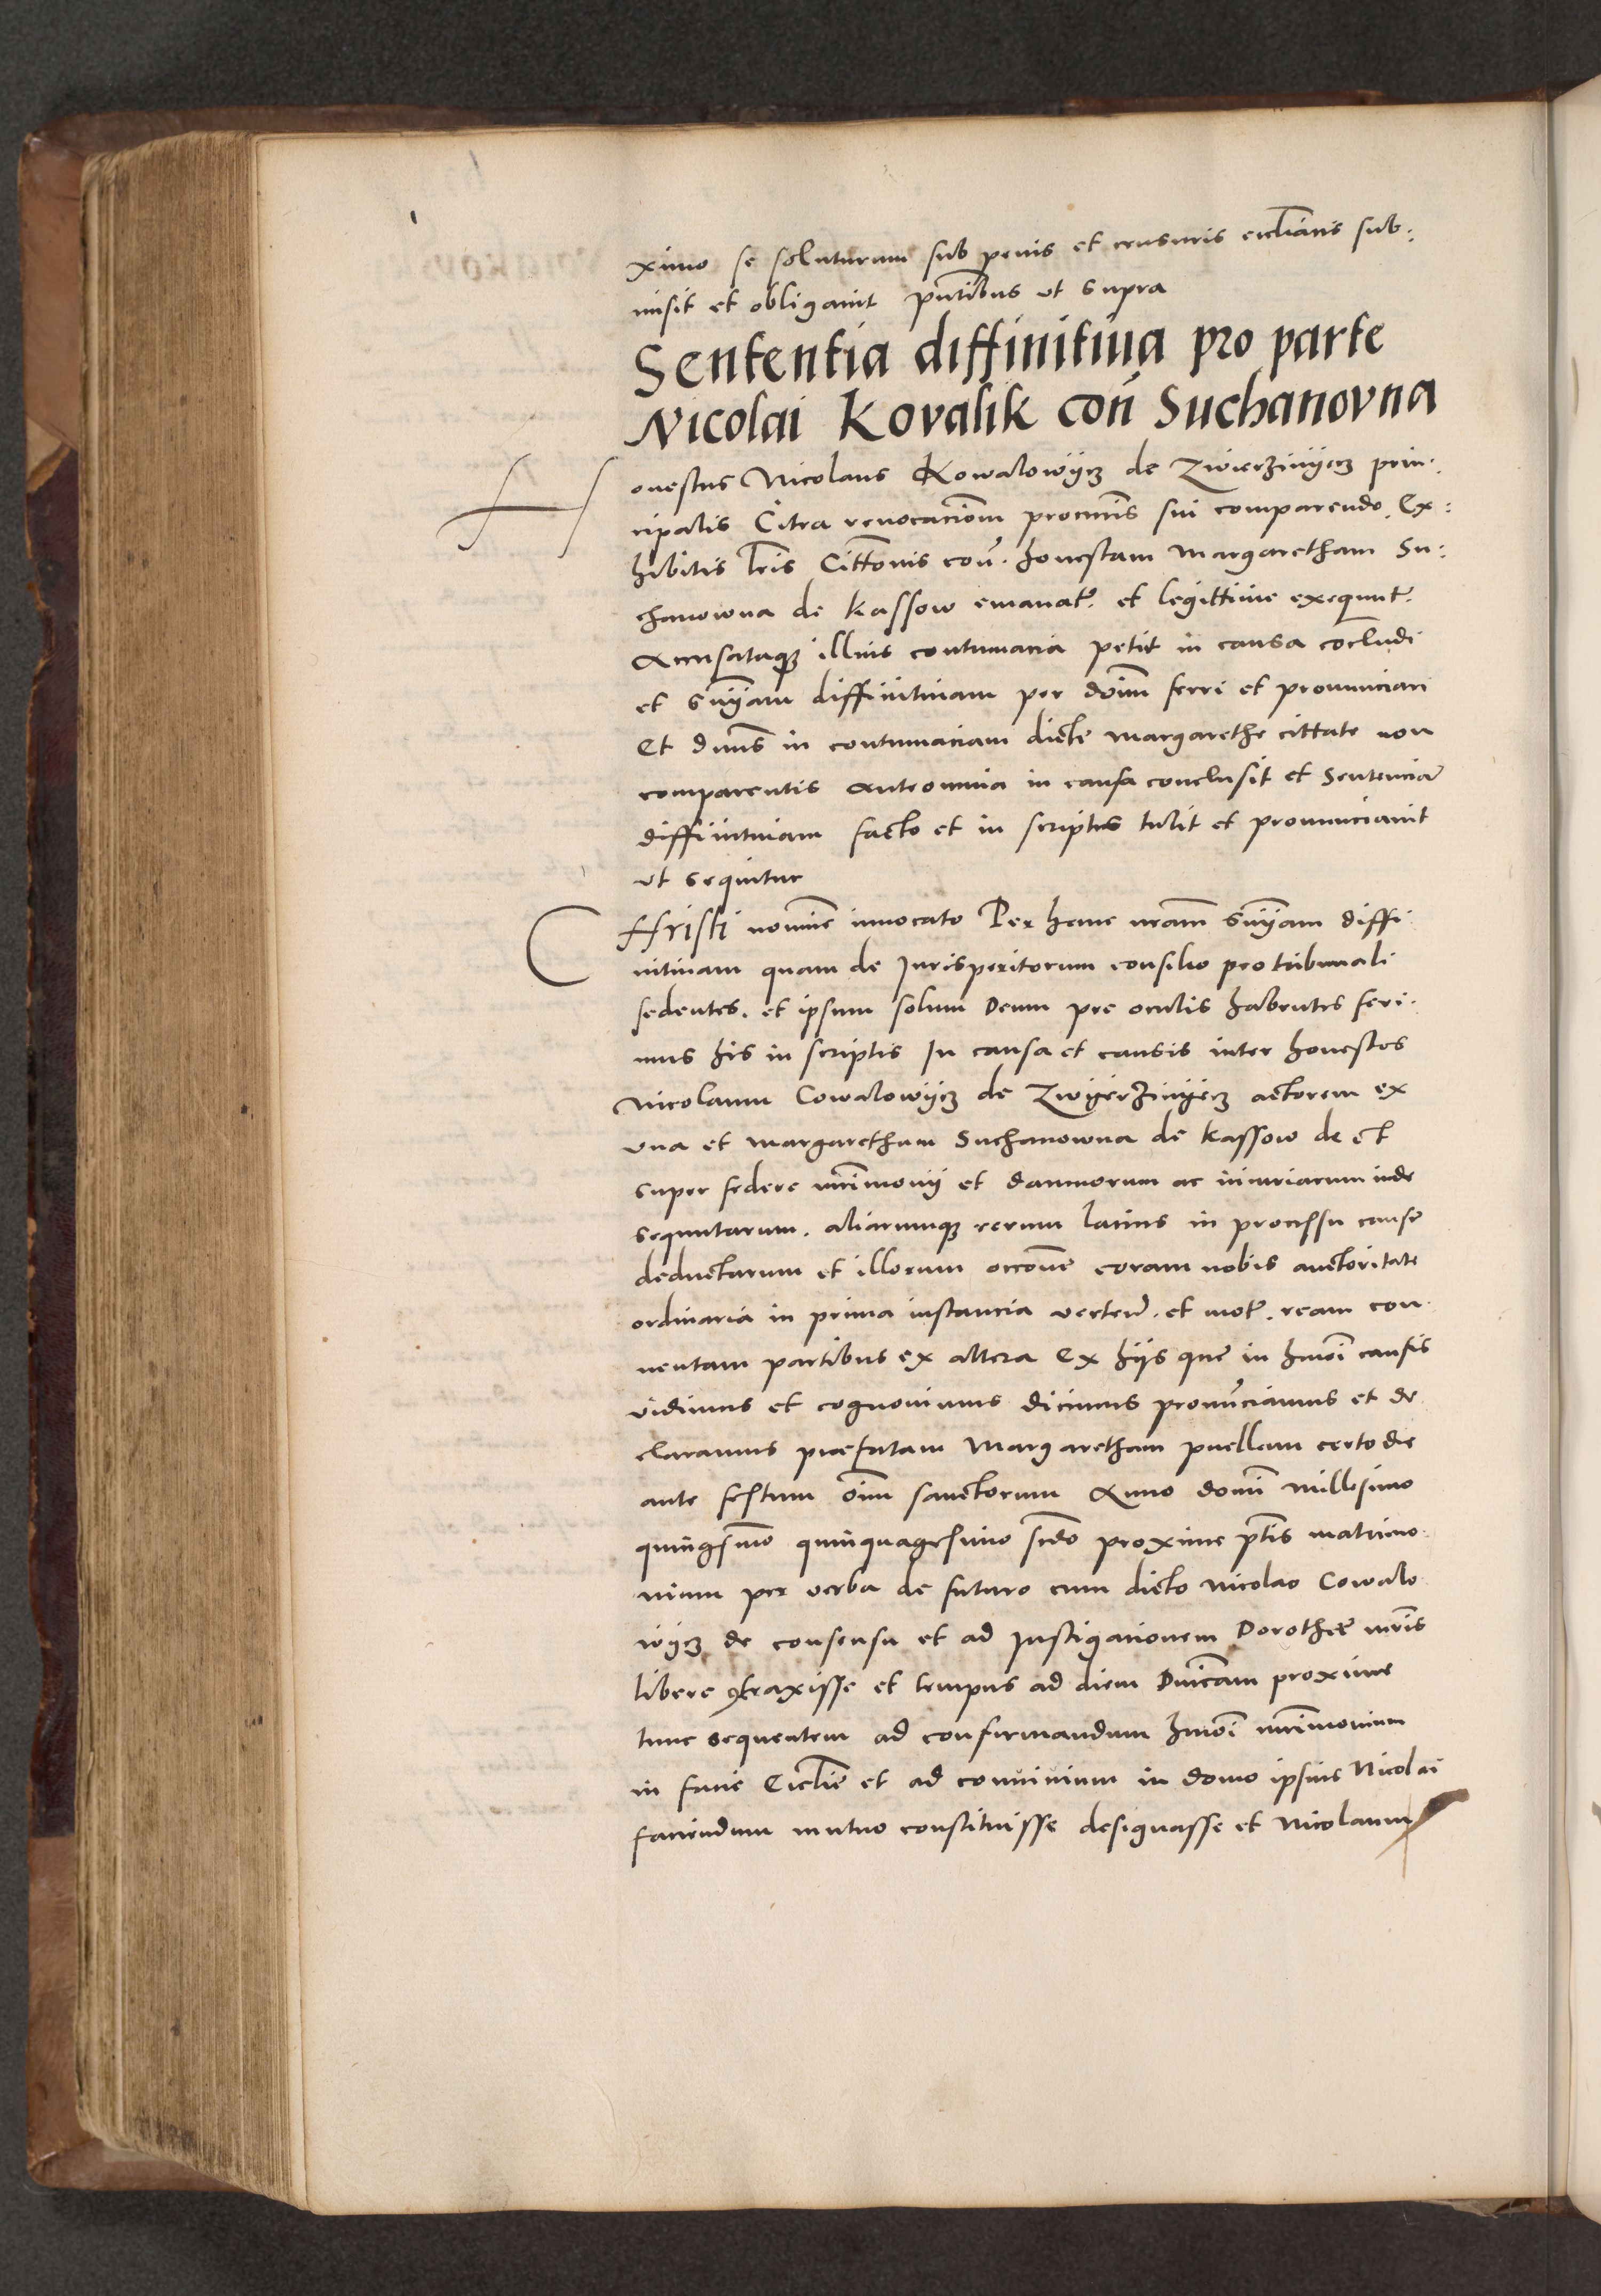 ximo se soluturum sub penis et censuris eccl̄iaticis sub:
misit et obligauit pn̄tibus vt supra
Sententia diffinitiua pro parte
Nicolai Kovalik con̄ Suchanovna
Honestus Nicolaus Kowalowijcz de Zwierzinijecz prin:
cipalis Citra reuocaciōem procurn̄is sui comparendo. Ex:
hibitis l̄ris Citt̄onis con̄. honestam Margaretham Su:
chanowna de Kassow emanat̄. et legittime exequut̄.
Accusataq; illius contumacia petit in causa cōcludi
et sn̄ijam diffinitiuam per dōm̄ ferri et pronunciari
Et dn̄us in contumaciam dicte Margarethe cittate non
comparentis anteomnia in causa conclusit et Sentenciā
diffinitiuam facto et in scriptis tulit et pronunciauit
vt sequitur
CHristi nomīe inuocato Per hanc nr̄am sn̄ijam diffi:
nitiuam quam de Jurisperitorum consilio pro tribunali
sedentes. et ipsum solum Deum pre oculis habentes feri:
mus his in scriptis In causa et causis inter honestos
Nicolaum Cowalowijcz de Zwijerzinijecz actorem ex
vna et Margaretham Suchanowna de Kassow de et
super federe mr̄imonij et damnorum ac iniuriarum inde
sequutarum. aliarumq; rerum latius in processu cause
deductarum et illorum occ̄one coram nobis auctoritate
ordinaria in prima instancia verten̄. et mot̄. ream con:
uentam partibus ex altera Ex hijs que in hmōi causis
vidimus et cognouimus dicimus pronūnciamus et de
claramus præfatam Margaretham puellam certo die
ante festum oīm sanctorum Anno domī Millesimo
quingēsimo quinquagesimo sc̄do proxime pn̄tis matrimo:
nium per verba de futuro cum dicto Nicolao Cowalo
wijcz de consensu et ad Instigationem Dorotheæ mr̄is
libere ꝯtraxisse et tempus ad diem Dnīcam proxime
tunc sequentem ad confirmandum hmōi mr̄imonium
in facie Eccl̄ie et ad conuiuium in domo ipsius Nicolai
faciendum mutuo constituisse designasse et Nicolaum